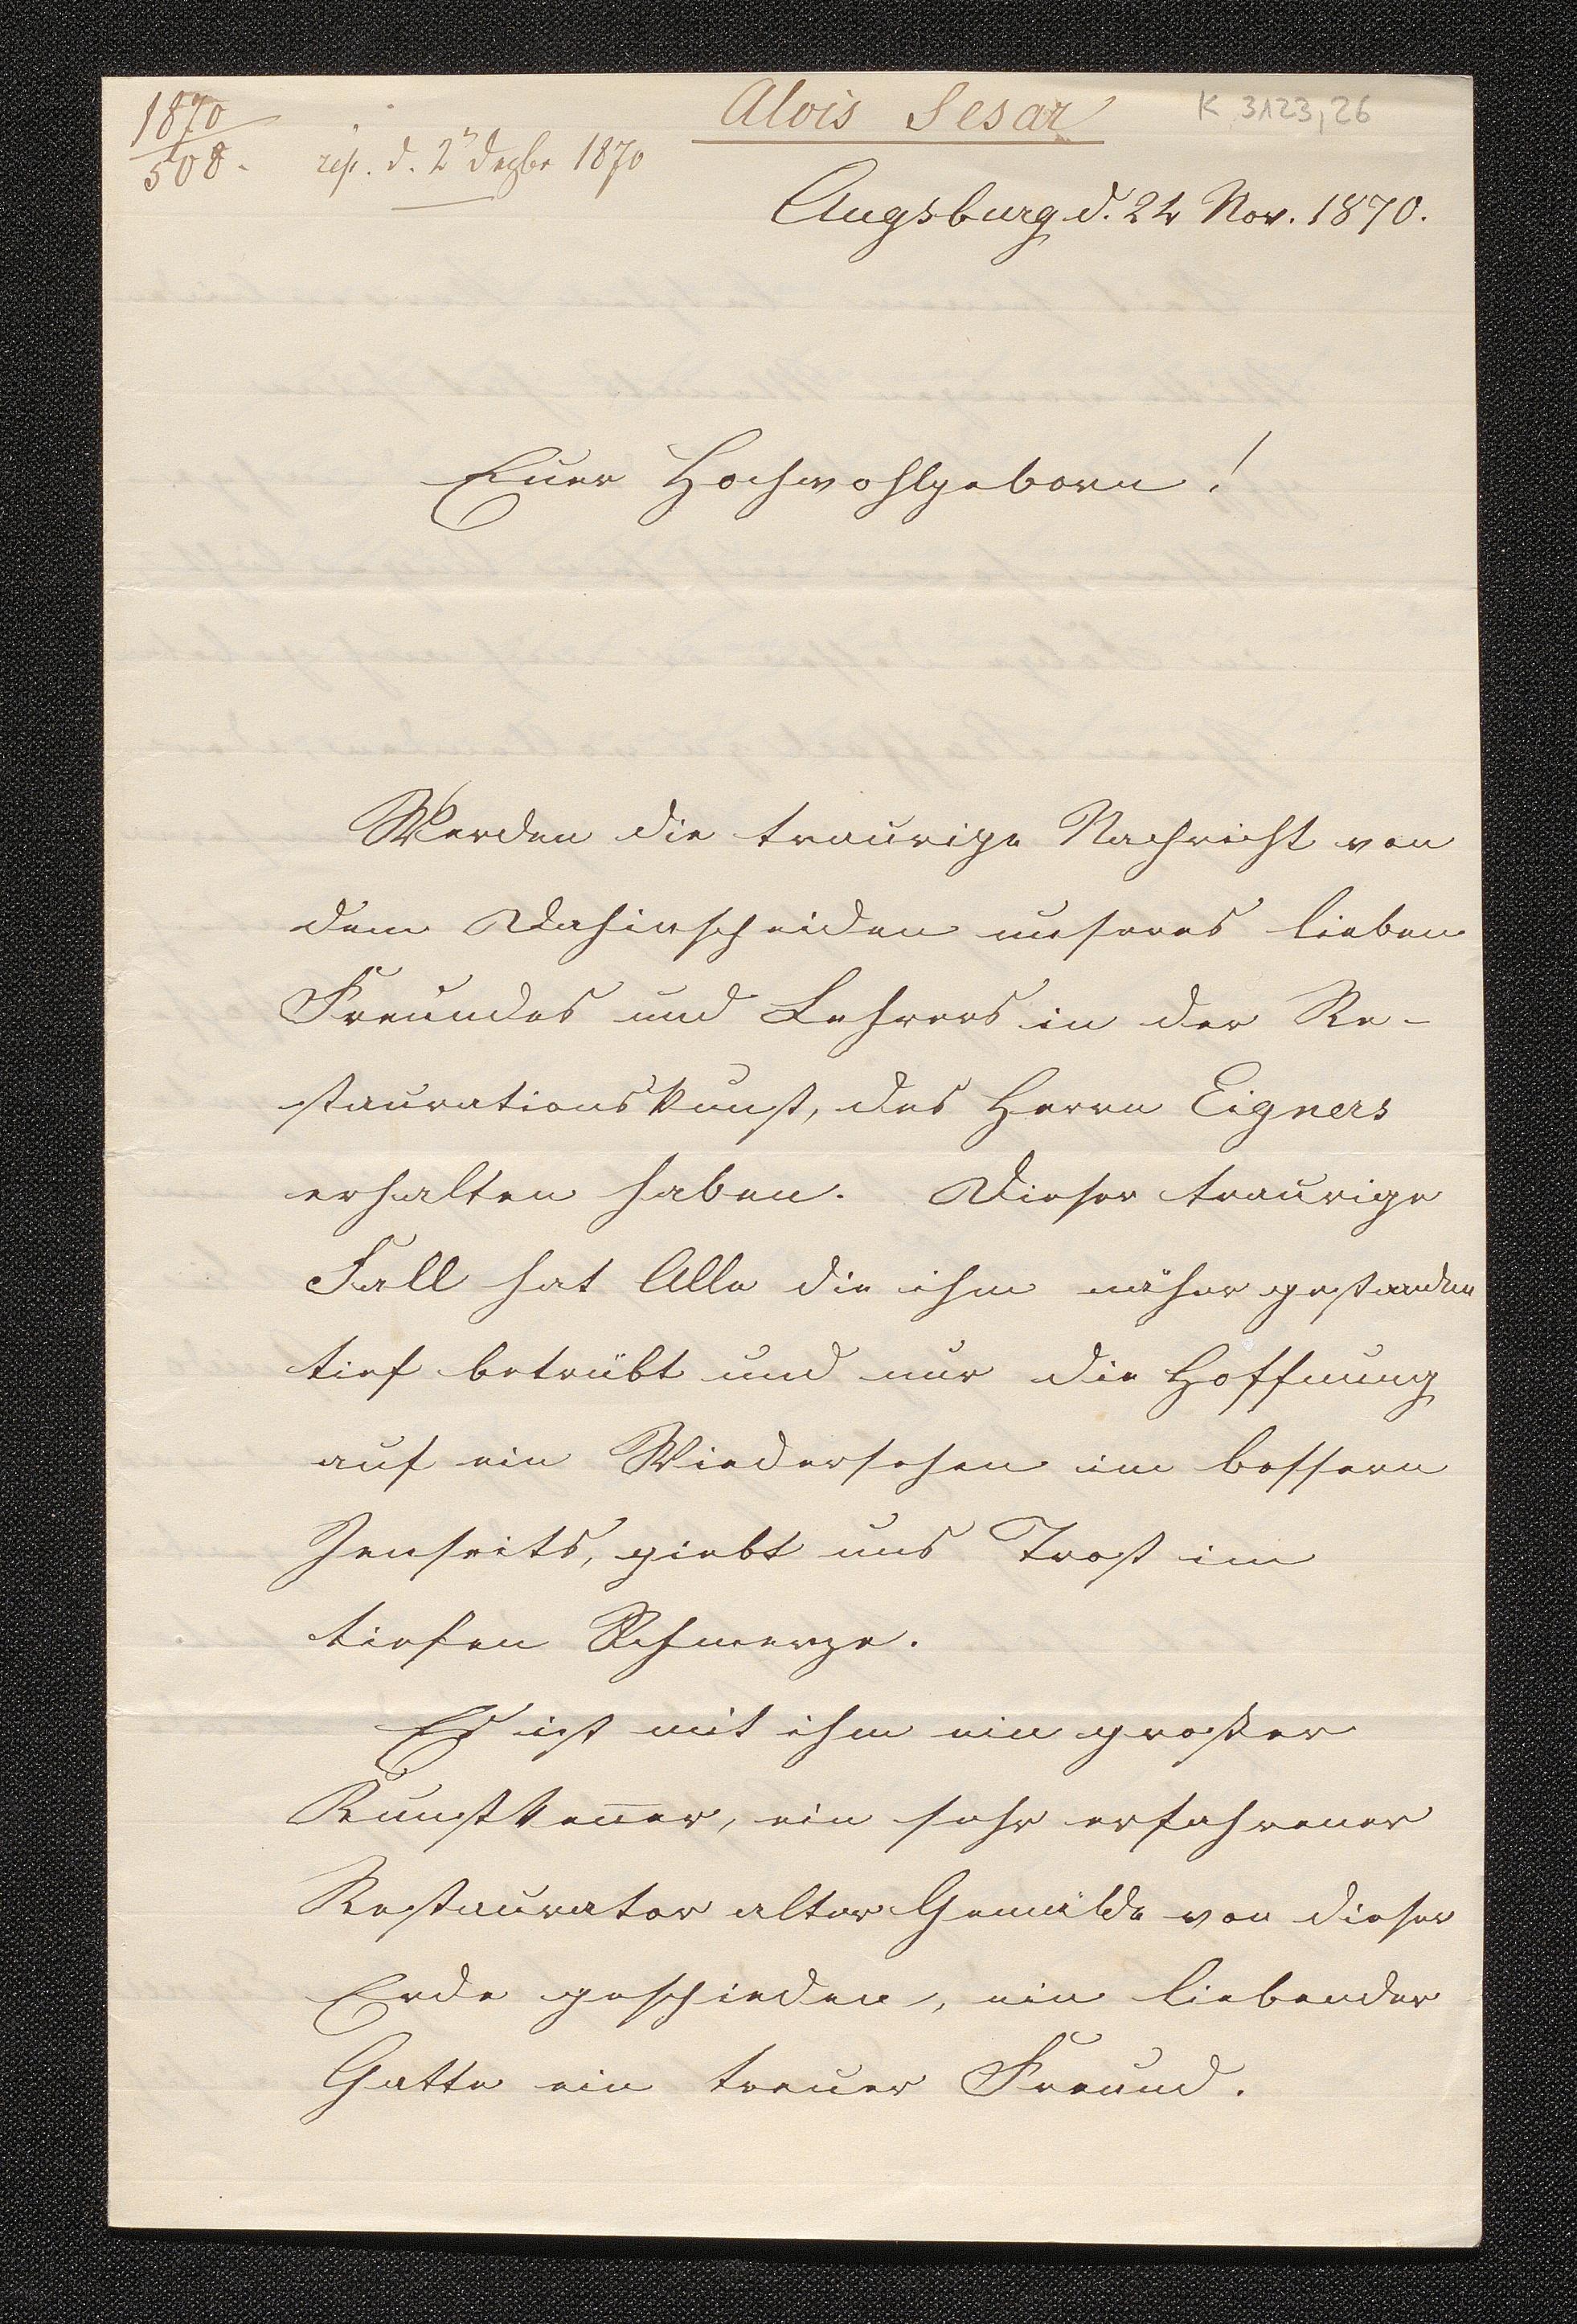 1870
508.
Alois Sesar
K 3123,26
rep. d. 2n Dezbr 1870
Augsburg d. 24 Nov. 1870.
Euer Hochwohlgeborn!
Werden die traurige Nachricht von
dem Dahinscheiden unseres lieben
Freundes und Lehrers in der Re-
staurationskunst, des Herrn Eigners
erhalten haben. Dieser traurige
Fall hat Alle die ihm näher gestanden
tief betrübt und nur die Hoffnung
auf ein Wiedersehen im bessern
Jenseits, giebt uns Trost im
tiefen Schmerze.
Es ist mit ihm ein großer
Kunstkeñer, ein sehr erfahrener
Restaurator alter Gemälde von dieser
Erde geschieden, ein liebender
Gatte ein treuer Freund.